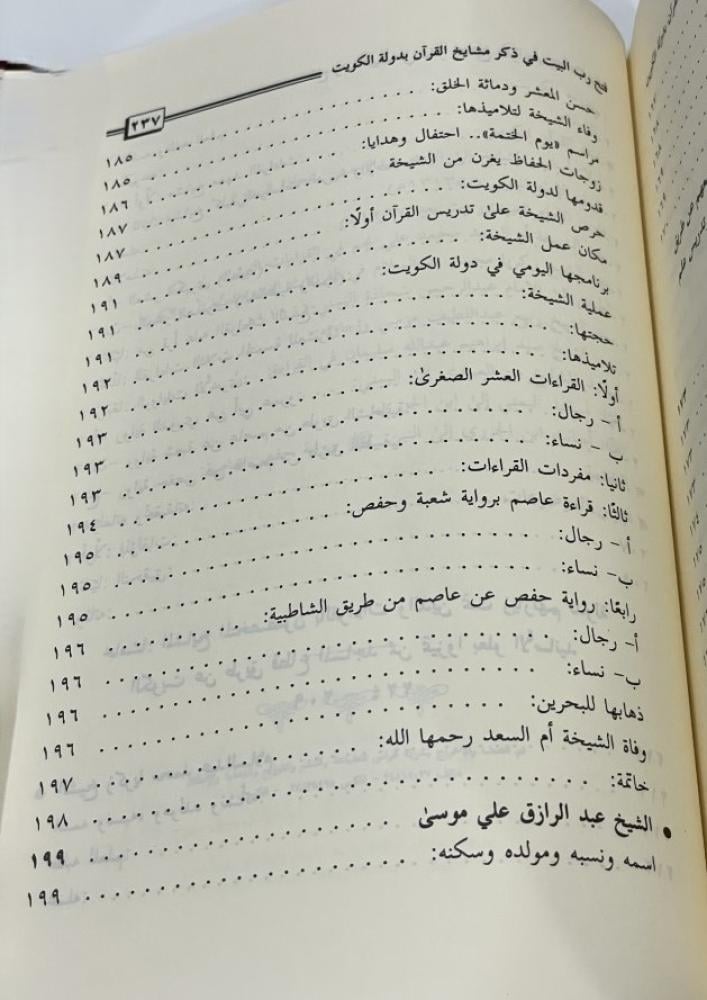 فتح رب البيت في ذكر مشايخ القرآن بدولة الكويت
٢٣٧
حسن المعشر ودماثة الخلق: ١٨٥
وفاء الشيخة لتلاميذها: ١٨٥
مراسم «يوم الختمة».. احتفال وهدايا: ١٨٦
زوجات الحفاظ يغرن من الشيخة ١٨٧
قدومها لدولة الكويت: ١٨٧
حرص الشيخة علىٰ تدريس القرآن أولًا: ١٨٩
مكان عمل الشيخة: ١٩١
برنامجها اليومي في دولة الكويت: ١٩١
عملية الشيخة: ١٩١
حجتها: ١٩٢
تلاميذها: ١٩٢
أولًا: القراءات العشر الصغرىٰ: ١٩٣
أ - رجال: ١٩٣
ب - نساء: ١٩٣
ثانيا: مفردات القراءات: ١٩٤
ثالثًا: قراءة عاصم برواية شعبة وحفص: ١٩٥
أ - رجال: ١٩٥
ب- نساء: ١٩٥
رابعًا: رواية حفص عن عاصم من طريق الشاطبية: ١٩٦
أ- رجال: ١٩٦
ب- نساء: ١٩٦
ذهابها للبحرين: ١٩٦
وفاة الشيخة أم السعد رحمها الله: ١٩٧
خاتمة: ١٩٨
• الشيخ عبد الرازق علي موسىٰ ١٩٩
اسمه ونسبه ومولده وسكنه: ١٩٩